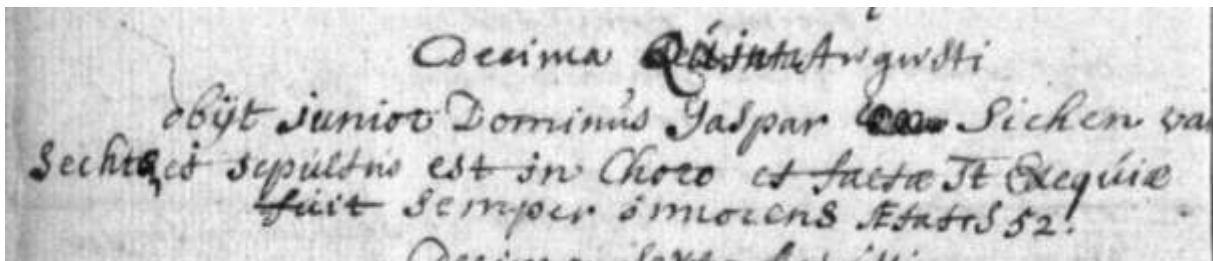 Decima Quinta Augusti
obijt junior Dominus Gaspar Sichen va
Sechts, et sepultus est in Choro et factæ st Exequiæ
fuit semper innocens Ætatis 52.
Decima Sexta